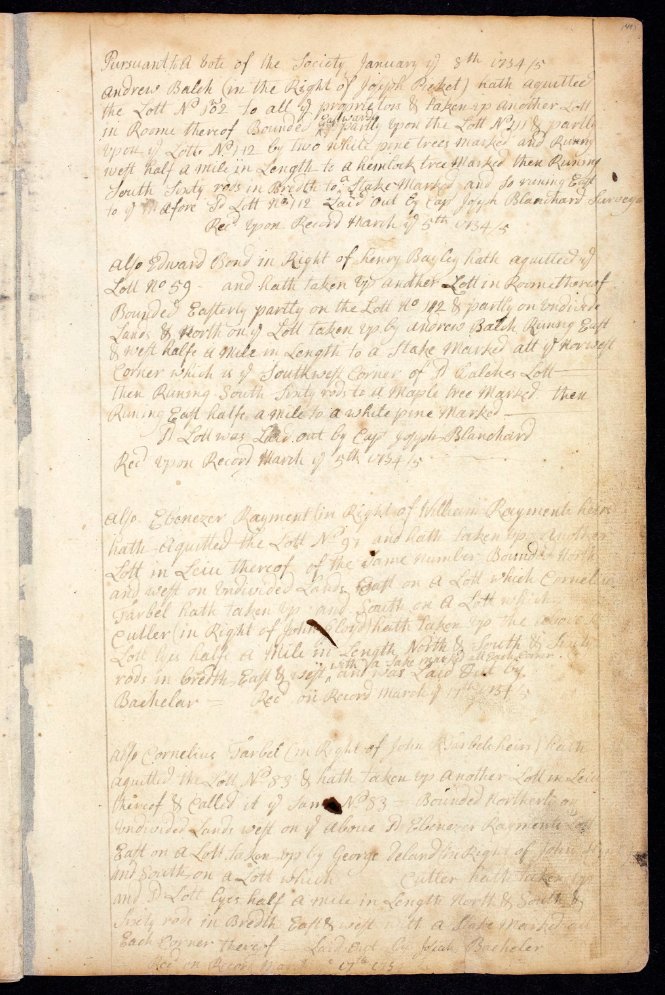 Pursuant to A vote of the Society January ye 8th 1734/5
Andrew Balch (in the Right of Joseph Picket) hath aquitted
the Lott No 102 to all ye propriators & taken up another Lott
in Roome thereof Bounded Eastwardly partly upon the Lott No 111 & partly
upon ye Lott No 112 by two white pine trees Marked and Runing
west half a Mile in Length to a hemlock tree Marked then Runing
South Sixty rods in Bredth to a Stake Marked and So runing East
to ye afore sd Lott No 112 Laid out by Capt Joseph Blanchard Surveyor
Recd upon Record March ye 5th 1734/5
Also Edward Bond in Right of Henry Bayley hath aquitted ye
Lott No 59 - and hath taken up another Lott in Roome thereof
Bounded Easterly partly on the Lott No 112 & partly on Undivided
Lands & North on ye Lott taken up by Andrew Balch Runing East
& west halfe a Mile in Length to a Stake Marked att ye Norwest
Corner which is ye Southwest Corner of sd Balches Lott
then Runing South Sixty rods to a Maple tree Marked then
Runing East halfe a mile to a white pine Marked
sd Lott was Laid out by Capt Joseph Blanchard
Recd upon Record March ye 5th 1734/5
Also Ebenezer Rayment (in Right of William Rayments heirs
hath Aquitted the Lott No 91 and hath taken up Another
Lott in Leiu thereof of the Same number Bounded North
and west on Undivided Lands East on a Lott which Cornelius
Tarbel hath taken up and South on a Lott which
Cutler (in Right of John Lloyd) hath Taken up the above sd
Lott Lyes halfe a Mile in Length North & South & Sixty
rods in bredth East & west with a Stake Marked att Each Corner and was Laid Out by
Bachelar = Recd on Record March ye 17th 1734/5
Also Cornelius Tarbel (in Right of John Tarbels heirs) hath
aquitted the Lott No 83 & hath taken up Another Lott in Leiu
thereof & Called it ye Same No 83 - Bounded Northerly on
Undivided Lands west on ye Above sd Ebenezer Rayments Lott
East on a Lott taken up by George Teland (in Right of John
and South on a Lott which Cutler hath Taken up
and sd Lott Lyes half a mile in Length North & South &
Sixty rods in Bredth East & west with a Stake Marked att
Each Corner thereof - Laid Out by Josiah Bacheler
Recd on Record March ye 17th